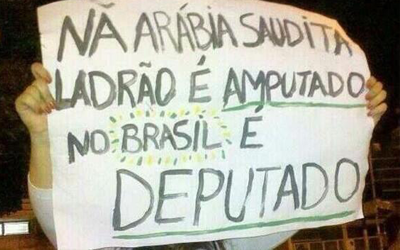 NÃ ARÁBIA SAUDITA
LADRÃO É AMPUTADO
NO BRASIL É
DEPUTADO